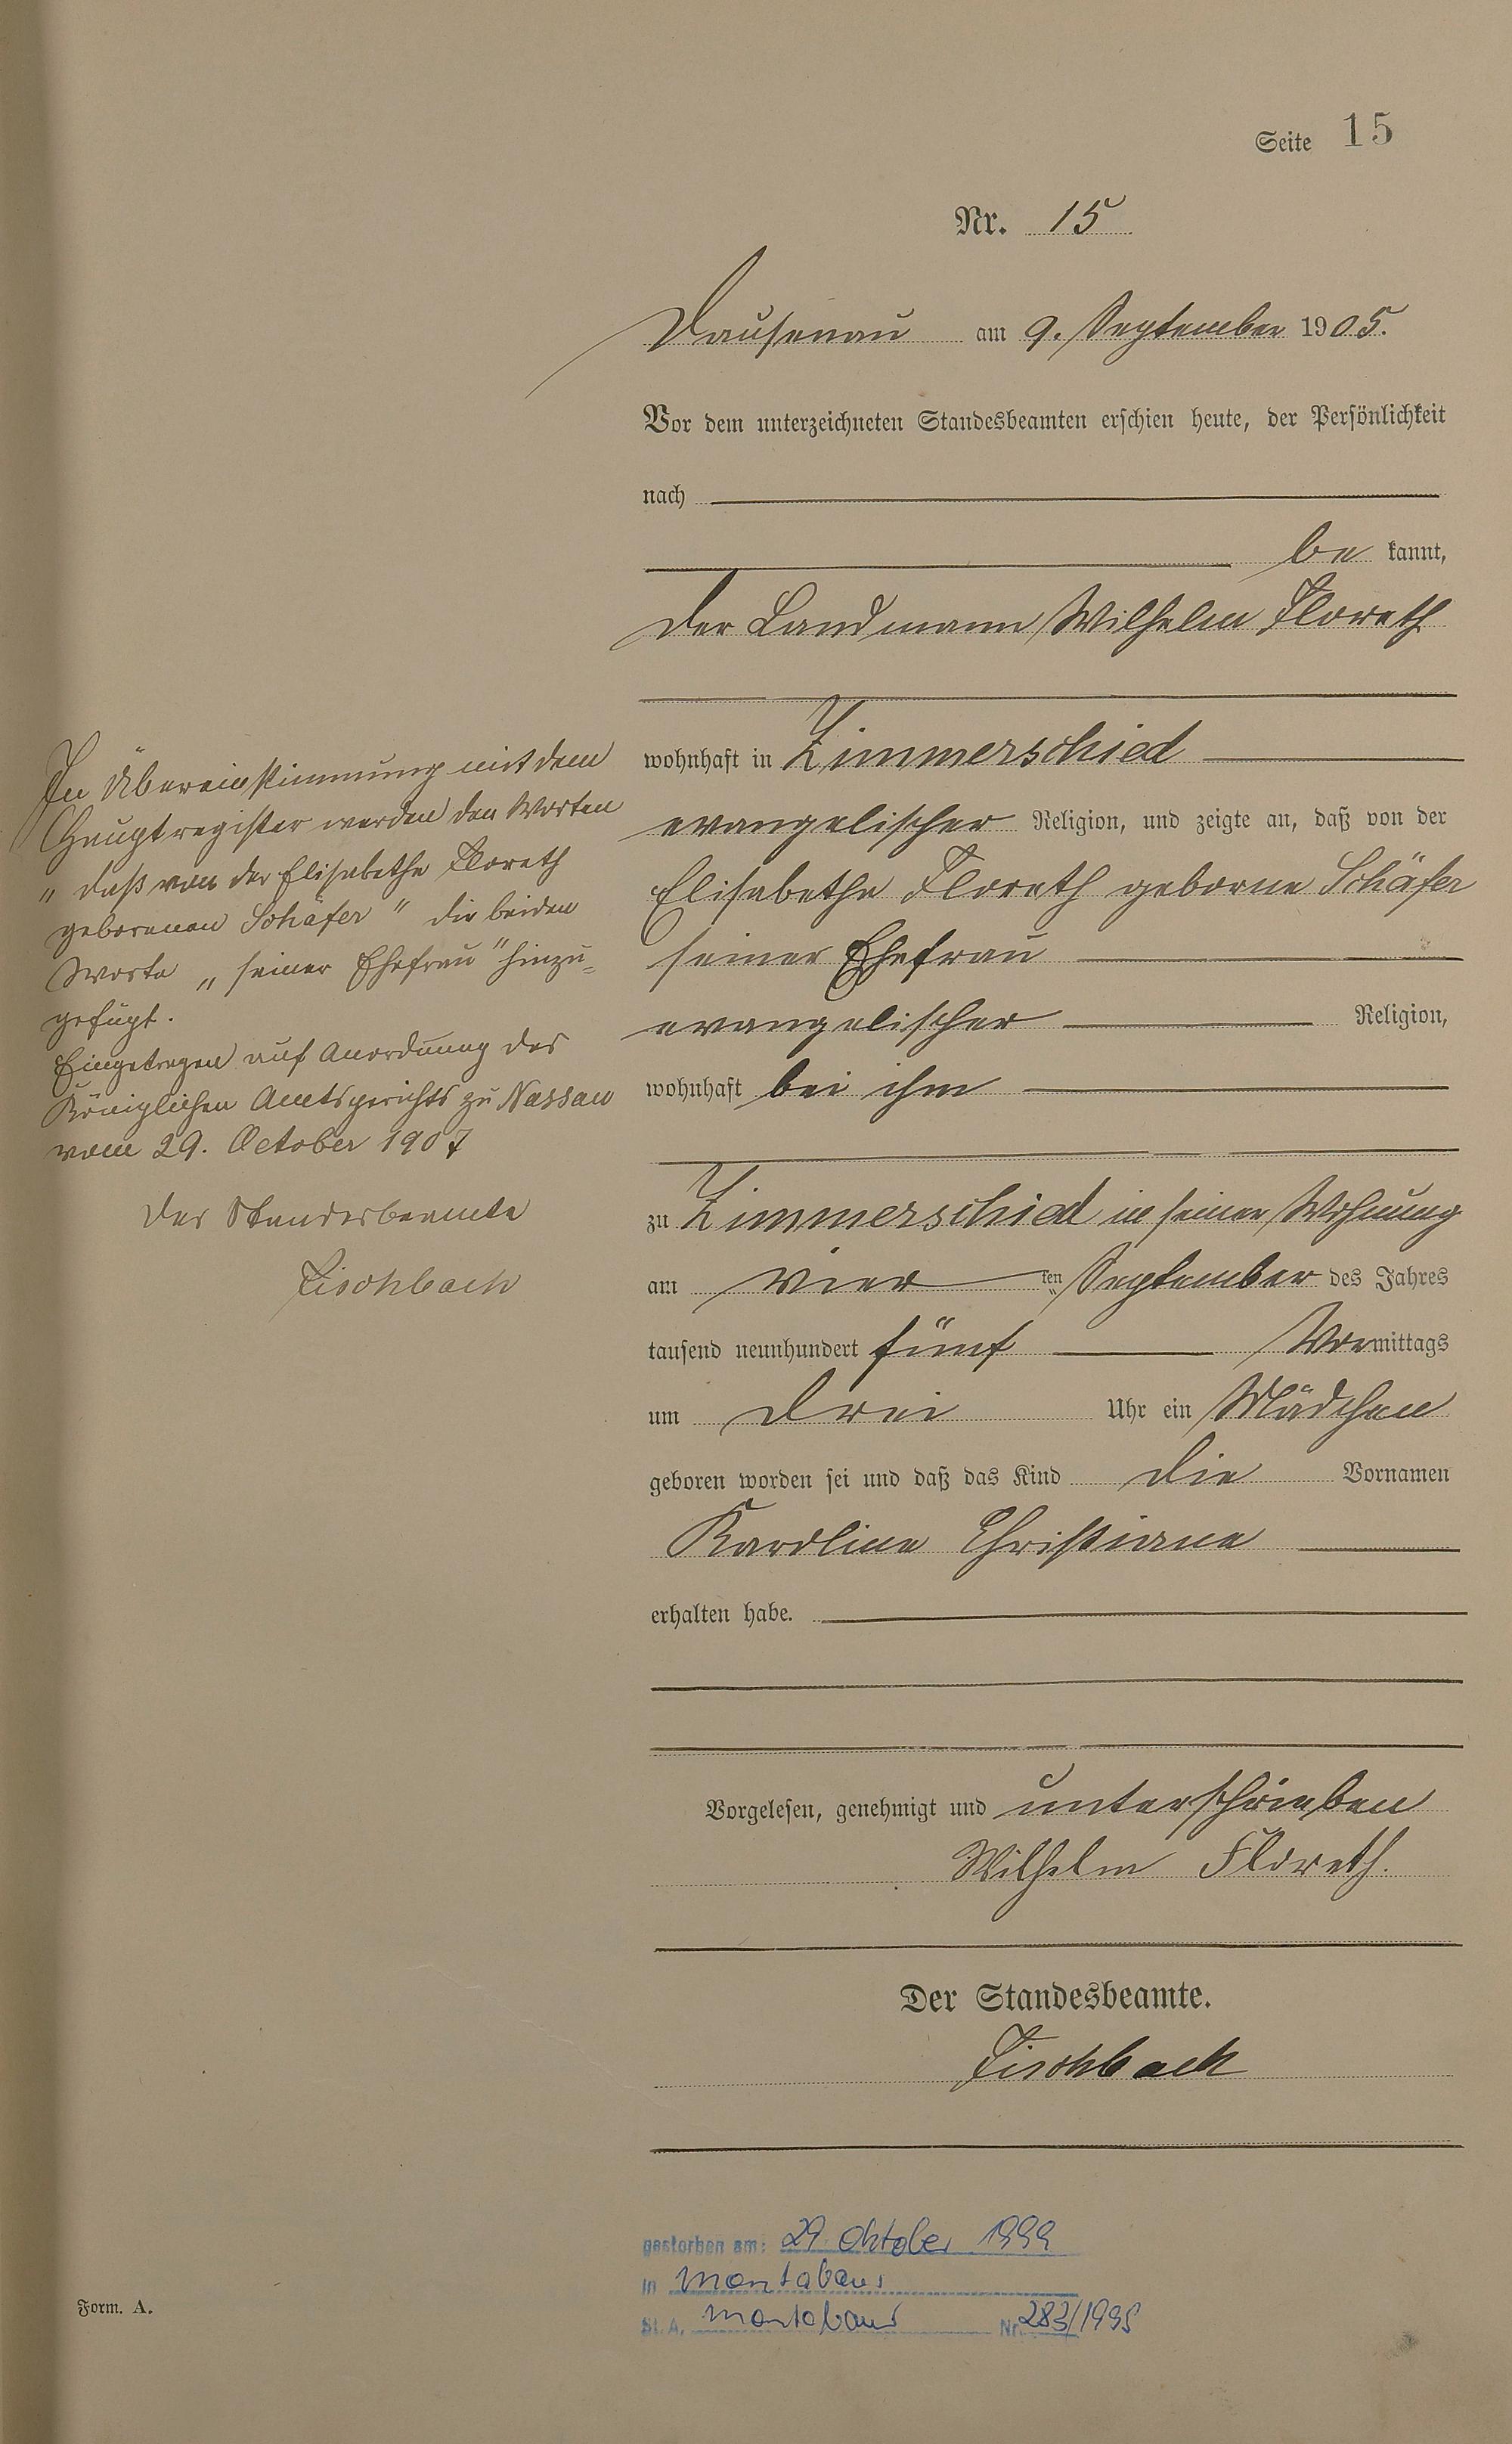 Seite 15
Nr. 15
Dausenau am 9. September 1905.
Vor dem unterzeichneten Standesbeamten erschien heute, der Persönlichkeit
nach
be kannt,
der Landmann Wilhelm Floreth
wohnhaft in Zimmerschied
evangelischer Religion, und zeigte an, daß von der
Elisabethe Floreth geborne Schäfer
seiner Ehefrau
evangelischer Religion,
wohnhaft bei ihm
zu Zimmerschied in seiner Wohnung
am vier ten September des Jahres
tausend neunhundert fünf Vormittags
um drei Uhr ein Mädchen
geboren worden sei und daß das Kind die Vornamen
Karoline Christiane
erhalten habe.
Vorgelesen, genehmigt und unterschrieben
Wilhelm Floreth.
Der Standesbeamte.
Fischbach
In Übereinstimmung mit dem
Hauptregister werden den Worten
„ daß von der Elisabethe Floreth
geborenen Schäfer " die beiden
Worte „ seiner Ehefrau " hinzu=
gefügt.
Eingetragen auf Anordnung des
Königlichen Amtsgerichts zu Nassau
vom 29. October 1907
Der Standesbeamte
Fischbach
gestorben am: 29. Oktober
in Montabaur
St. A. Montabaur Nr.
Form. A.